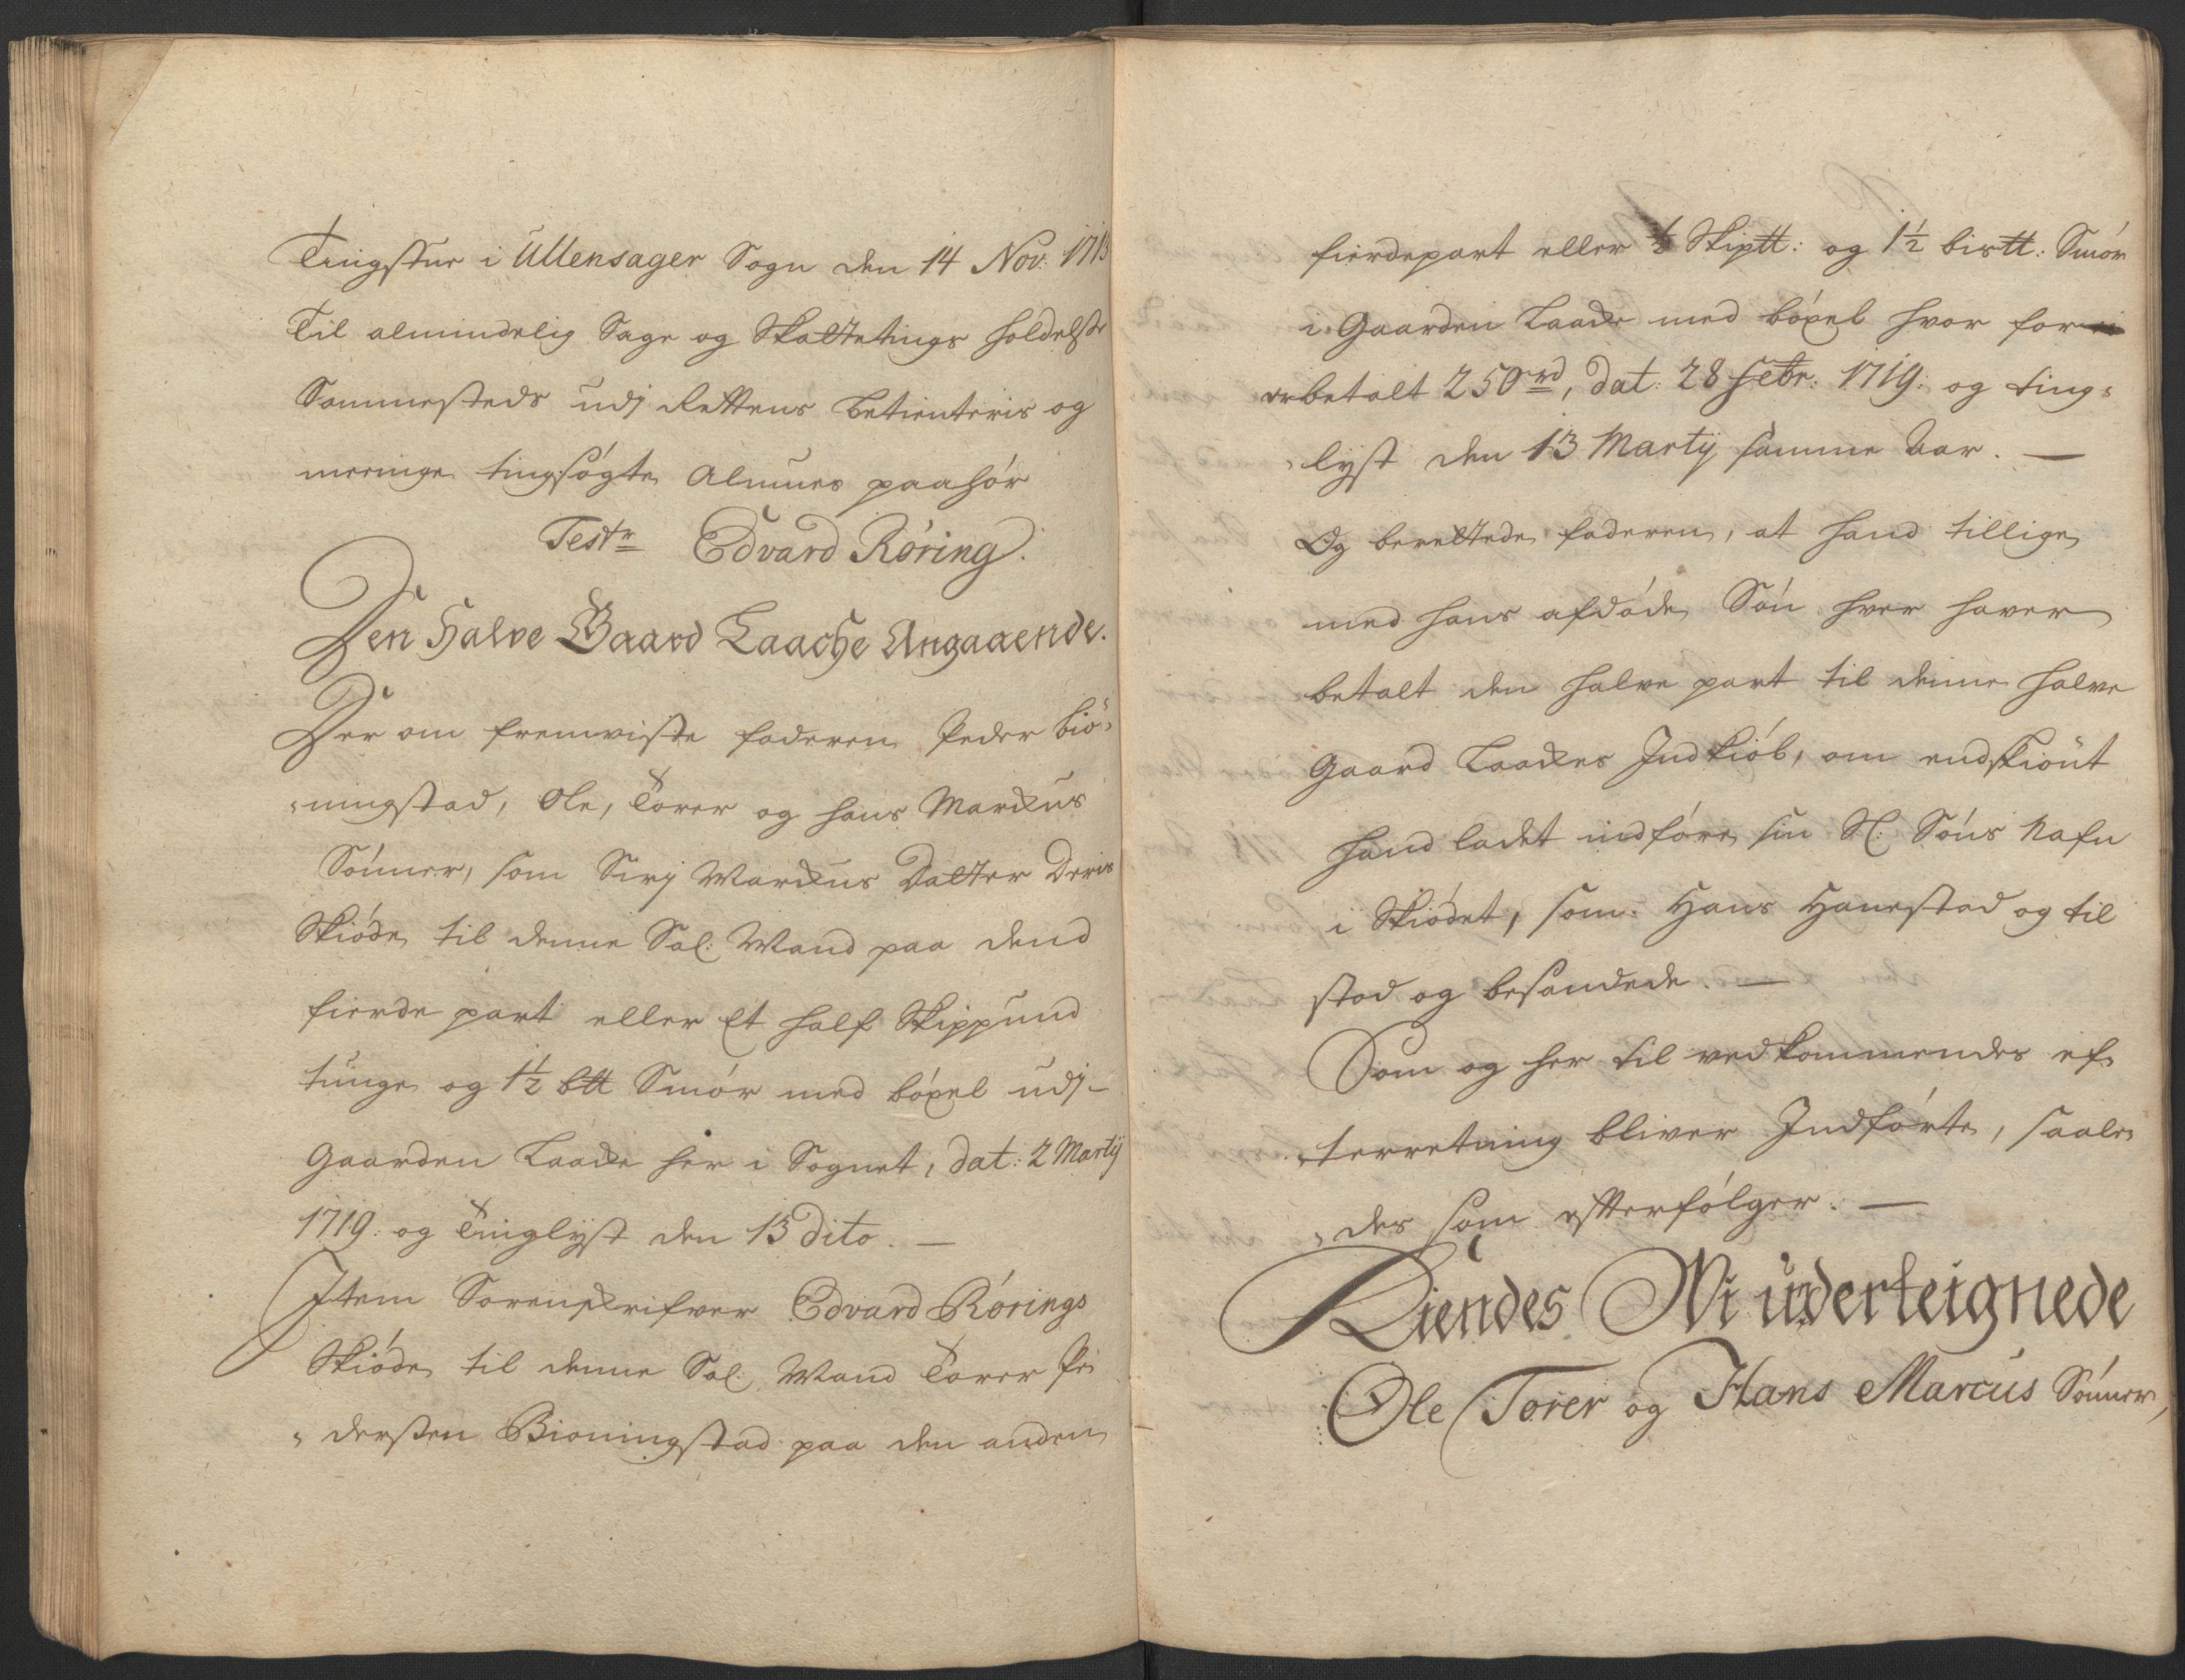 Tingstue i Ullensager Sogn den 14 Nov: 1713
Til almindelig Sage og Skattetings holdelse
Sammesteds udj Rettens betienteris og
meenige tingsøgte Almues paahør
Test Edvard Röring.
Den Halve Gaard Laache Angaaende.
Der om fremviste faderen Peder Biö-
ningstad, Ole, Torer og Hans Marcus
Sönner, som Sirj Marcus Datter Deris
Skiöde til denne Sal: Mand paa dend
fierde part eller Et half Skippund
tunge og 1½ btt Smör med böxel udj-
Gaarden Laache her i Sognet, dat: 2 Martij
1719: og Tinglyst den 13 dito. —
Item Sorenskrifver Edvard Rörings
Skiöde til denne Sal: Mand Torer Pe
dersen Bioningstad paa den anden
fierdepart eller ½ Skiptt: og 1½ bistt: Smör
i Gaarden Laache med böxel hvor for
er betalt 250 rd, dat: 28 Febr: 1719: og ting-
lyst den 13 Martij samme Aar. —
Og berettede faderen, at hand tillige
med hans afdöde Sön hver haver
betalt den halve part til denne halve
Gaard Laaches Indkiöb, om endskiönt
hand ladet indföre sin Sl: Söns Nafn
i Skiödet, som Hans Hanestad og til
stod og besandede. —
Som og her til vedkommendes ef-
terretning bliver Indförte, saale-
des som efterfölger. —
Kiendes Vi underteignede
Ole Torer og Hans Marcus Sönner,